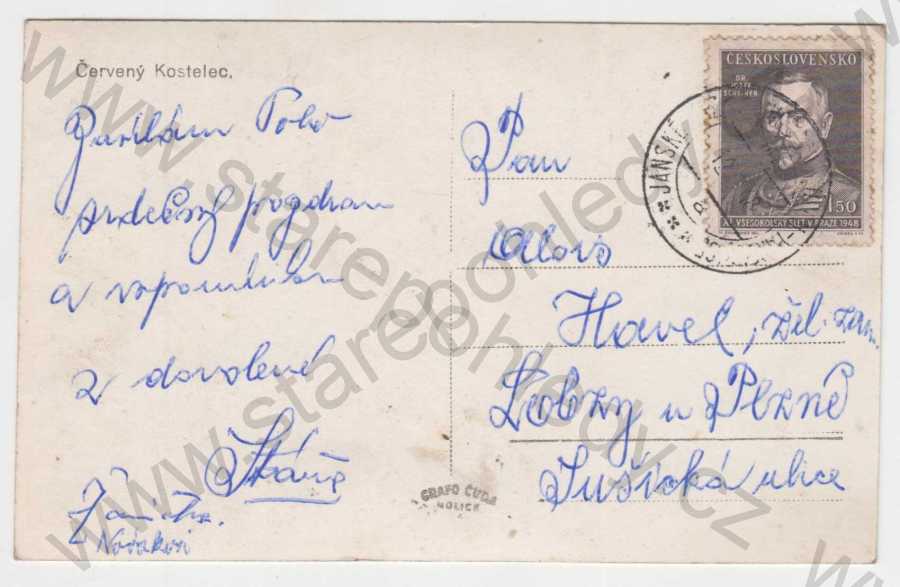 Červený Kostelec.
Zasílám Tobě
srdečný pozdrav
a vzpomínku
z dovolené
Stáňa
Nováková
Pan
Alois
Havel, žel. zam.
Lobzy u Plzně
Sušická ulice
ČESKOSLOVENSKO
DR.
JOSEF
SCHEINER
1.50
XI. VŠESOKOLSKÝ SLET V PRAZE 1948
JÁNSKÉ
GRAFO ČUDA
HOLICE
www.starepohledy.cz